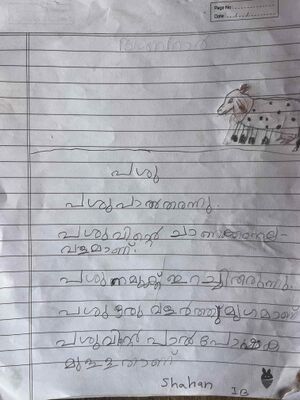 Page No:
Date:
പശു
പശു പാൽ തരുന്നു.
പശുവിന്റെ ചാണകം
വളമാണ്.
പശു നമുക്ക് ഇറച്ചി തരുന്നു.
പശു ഒരു വളർത്തു മൃഗമാണ്
പശുവിൻ പാൽ പോഷക
മുള്ളതാണ്
Shahan IB